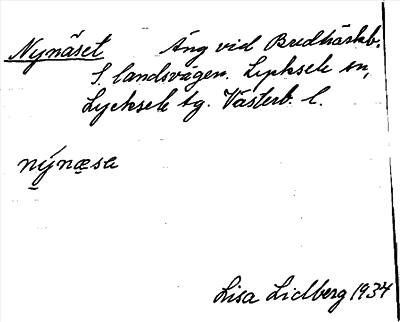 Nynäset Äng vid Bredträskb.
S. landsvägen. Lycksele sn,
Lycksele tg. Västerb. l.
nýnæsa
Lisa Lidberg 1934